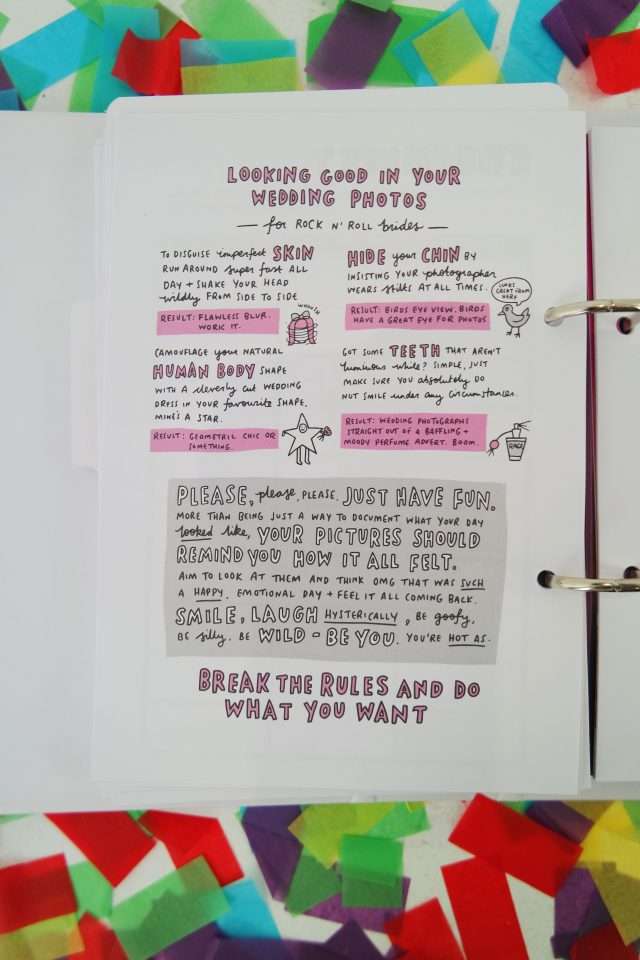 LOOKING GOOD IN YOUR
WEDDING PHOTOS
— for ROCK N' ROLL brides —
TO DISGUISE imperfect SKIN
RUN AROUND super fast ALL
DAY + SHAKE YOUR HEAD
wildly FROM SIDE TO SIDE
WHOOSH
RESULT: FLAWLESS BLUR.
WORK IT.
HIDE your CHIN BY
INSISTING YOUR photographer
WEARS stilts AT ALL TIMES.
LOOKS
GREAT FROM
HERE
RESULT: BIRDS EYE VIEW. BIRDS
HAVE A GREAT EYE FOR PHOTOS.
CAMOUFLAGE your NATURAL
HUMAN BODY SHAPE
WITH A cleverly cut WEDDING
DRESS IN YOUR favourite SHAPE.
MINE'S A STAR.
RESULT: GEOMETRIC CHIC OR
SOMETHING.
GOT SOME TEETH THAT AREN'T
luminous white? SIMPLE, JUST
MAKE SURE YOU absolutely DO
NOT SMILE under any circumstances.
RESULT: WEDDING PHOTOGRAPHS
STRAIGHT OUT OF A BAFFLING +
MOODY PERFUME ADVERT. BOOM.
PLEASE, please, PLEASE. JUST HAVE FUN.
MORE THAN BEING JUST A WAY TO DOCUMENT WHAT YOUR DAY
looked like, YOUR PICTURES SHOULD
REMIND YOU HOW IT ALL FELT.
AIM TO LOOK AT THEM AND THINK OMG THAT WAS SUCH
A HAPPY, EMOTIONAL DAY + FEEL IT ALL COMING BACK.
SMILE, LAUGH HYSTERICALLY, BE goofy,
BE silly. BE WILD - BE YOU. YOU'RE HOT AS.
BREAK THE RULES AND DO
WHAT YOU WANT